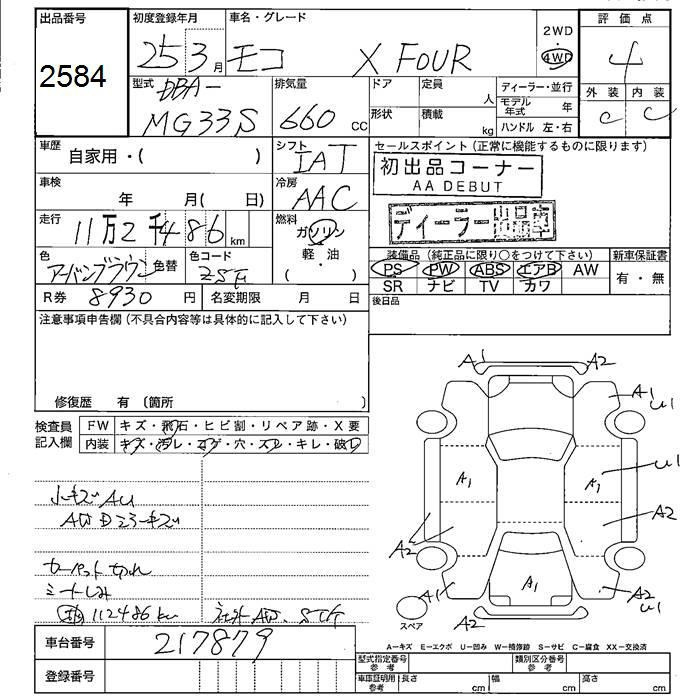 出品番号
2584
初度登録年月
25 3月
車名・グレード
モコ X FOUR
2WD
・
4WD
評価点
4
外装 内装
C C
型式
DBA-
MG33S
排気量
660 CC
ドア
定員
人
形状
積載
kg
ディーラー・並行
モデル年式 年
ハンドル 左・右
車歴
自家用・( )
シフト
IAT
車検
年 月( 日)
冷房
AAC
走行
11万2千486 km
燃料
ガソリン
軽・油
( )
色
アーバンブラウン
色替
色コード
R券 8930 円
名変期限 月 日
セールスポイント(正常に機能するものに限ります)
初出品コーナー
AA DEBUT
ディーラー出品車
装備品(純正品に限り○をつけて下さい)
新車保証書
PS PW ABS エアB AW
SR ナビ TV カワ
有・無
後日品
注意事項申告欄(不具合内容等は具体的に記入して下さい)
修復歴 有(箇所 )
検査員記入欄
FW キズ・飛石・ヒビ割・リペア跡・X要
内装 キズ・汚レ・コゲ・穴・スレ・キレ・破レ
小キズAU
AW Dミラーキズ
カーペット切れ
シートしみ
112486km
社外AW. STG
車台番号
217879
登録番号
A1 A2
A1 U1
A1 A1 U1
A2 A2
A1 A1 A2 U1
A2
スペア
A-キズ E-エクボ U-凹み W-補修跡 S-サビ C-腐食 XX-交換済
型式指定番号
参考
類別区分番号
参考
車庫証明用
参考
長さ cm
幅 cm
高さ cm